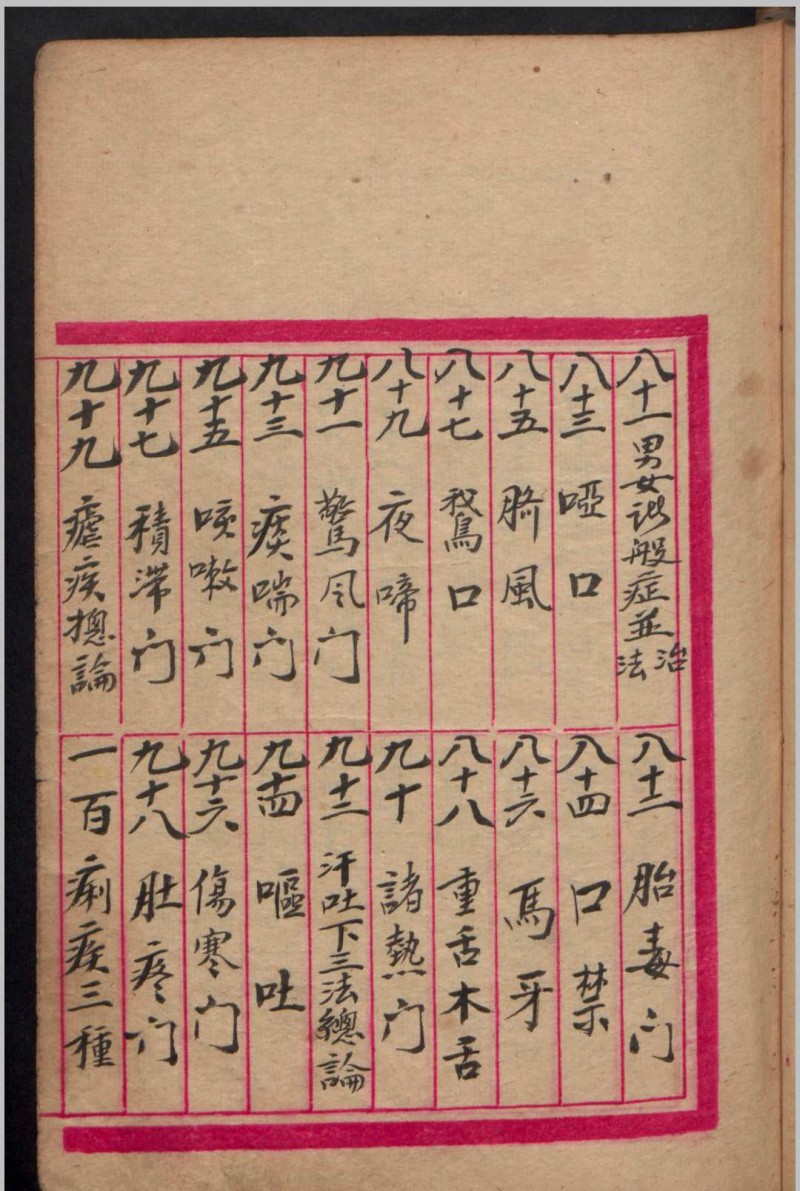 八十一 男女諸般症並治法
八十二 胎毒门
八十三 啞口
八十四 口禁
八十五 臍風
八十六 馬牙
八十七 鵞口
八十八 重舌木舌
八十九 夜啼
九十 諸熱门
九十一 驚风门
九十二 汗吐下三法總論
九十三 痰喘门
九十四 嘔吐
九十五 咳嗽门
九十六 傷寒门
九十七 積滞门
九十八 肚疼门
九十九 瘧疾摠論
一百 痢疾三種